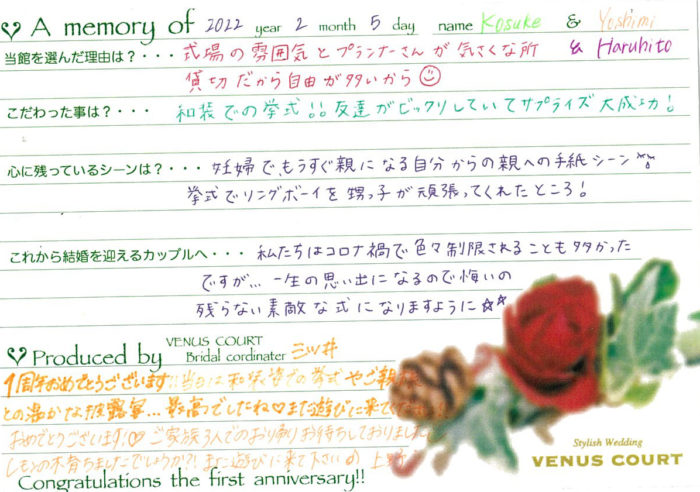 A memory of 2022 year 2 month 5 day name Kosuke & Yoshimi
& Haruhito
当館を選んだ理由は？・・・ 式場の雰囲気とプランナーさんが気さくな所
貸切だから自由が多いから
こだわった事は？・・・ 和装での挙式!!友達がビックリしていてサプライズ大成功!
心に残っているシーンは？・・・ 妊婦で、もうすぐ親になる自分からの親への手紙シーン
挙式でリングボーイを甥っ子が頑張ってくれたところ!
これから結婚を迎えるカップルへ・・・ 私たちはコロナ禍で色々制限されることも多かった
ですが... 一生の思い出になるので悔いの
残らない素敵な式になりますように☆☆
Produced by VENUS COURT
Bridal cordinater 三ツ井
1周年おめでとうございます!! 当日は和装での挙式やご親族
との温かな披露宴... 最高でしたね♡また遊びに来て
おめでとうございます!♡ ご家族3人でのお帰りお待ちしておりました
また遊びに来て下さい 上野
Congratulations the first anniversary!!
Stylish Wedding
VENUS COURT